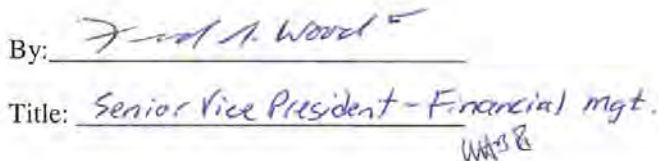 By: Fred A. Wood
Title: Senior Vice President - Financial mgt.